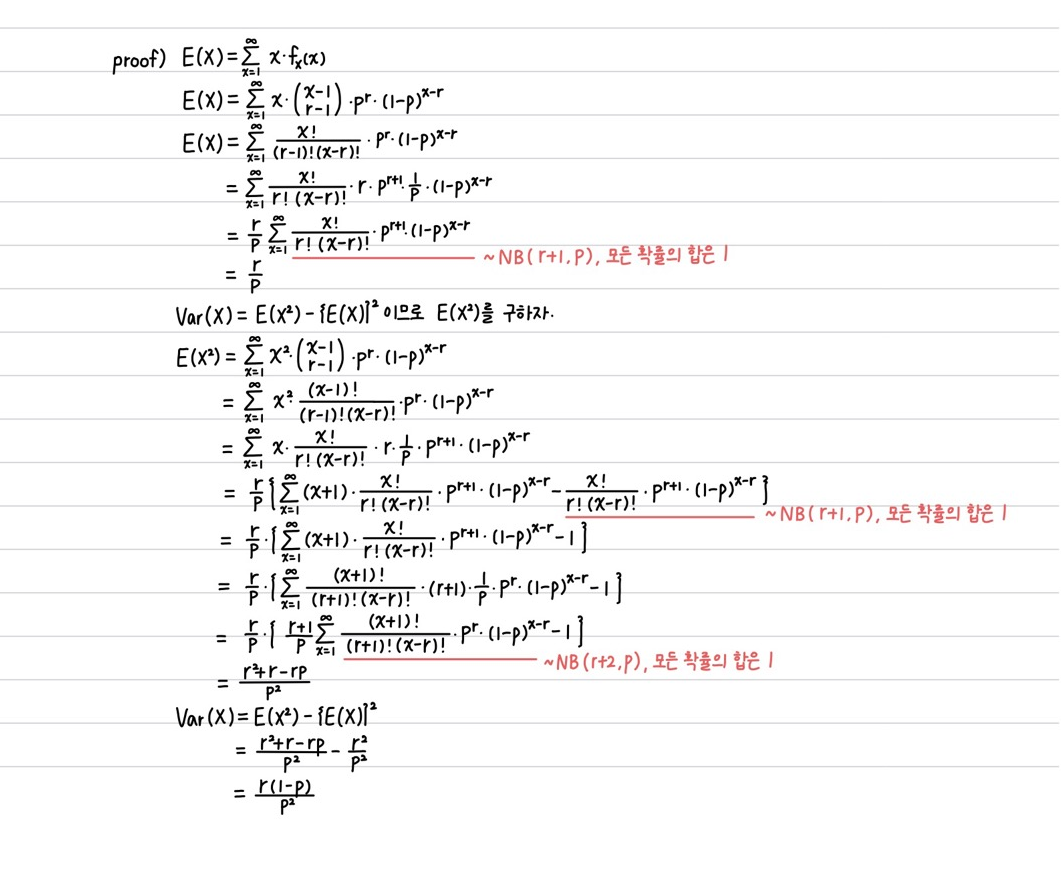 proof) E(X) = ∑_{x=1}^{∞} x·f_x(x)
E(X) = ∑_{x=1}^{∞} x·(x-1 r-1)·p^r·(1-p)^{x-r}
E(X) = ∑_{x=1}^{∞} x!/((r-1)!(x-r)!)·p^r·(1-p)^{x-r}
= ∑_{x=1}^{∞} x!/(r!(x-r)!)·r·p^{r+1}·1/p·(1-p)^{x-r}
= r/p ∑_{x=1}^{∞} x!/(r!(x-r)!)·p^{r+1}·(1-p)^{x-r}
~NB(r+1, p), 모든 확률의 합은 1
= r/p
Var(X) = E(X²) - {E(X)}² 이므로 E(X²)를 구하자.
E(X²) = ∑_{x=1}^{∞} x²·(x-1 r-1)·p^r·(1-p)^{x-r}
= ∑_{x=1}^{∞} x² (x-1)!/((r-1)!(x-r)!)·p^r·(1-p)^{x-r}
= ∑_{x=1}^{∞} x·x!/(r!(x-r)!)·r·1/p·p^{r+1}·(1-p)^{x-r}
= r/p {∑_{x=1}^{∞} (x+1)·x!/(r!(x-r)!)·p^{r+1}·(1-p)^{x-r} - x!/(r!(x-r)!)·p^{r+1}·(1-p)^{x-r}}
~NB(r+1, p), 모든 확률의 합은 1
= r/p·{∑_{x=1}^{∞} (x+1)·x!/(r!(x-r)!)·p^{r+1}·(1-p)^{x-r} - 1}
= r/p·{∑_{x=1}^{∞} (x+1)!/((r+1)!(x-r)!)·(r+1)·1/p·p^r·(1-p)^{x-r} - 1}
= r/p·{(r+1)/p ∑_{x=1}^{∞} (x+1)!/((r+1)!(x-r)!)·p^r·(1-p)^{x-r} - 1}
~NB(r+2, p), 모든 확률의 합은 1
= (r²+r-rp)/p²
Var(X) = E(X²) - {E(X)}²
= (r²+r-rp)/p² - r²/p²
= r(1-p)/p²